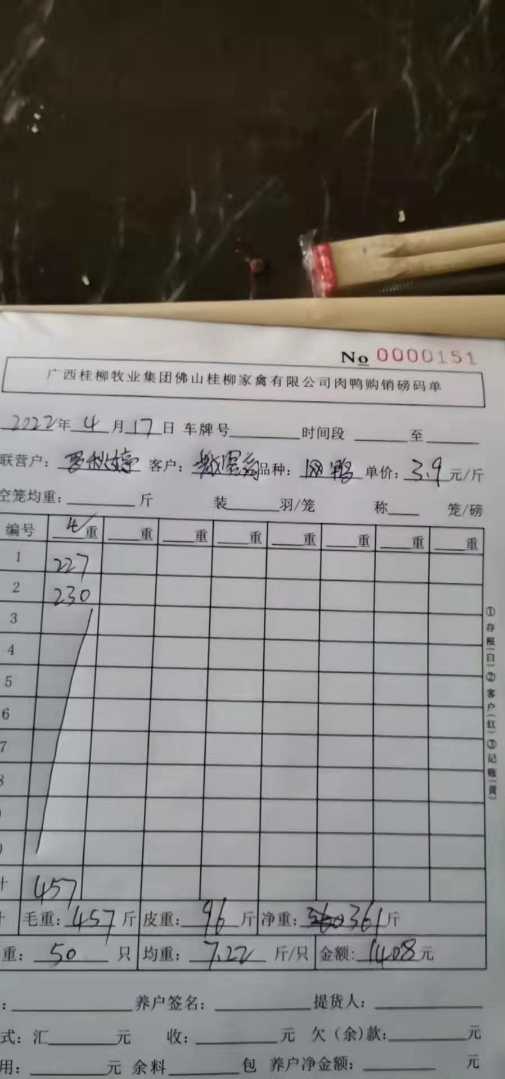 No 0000151
广西桂柳牧业集团佛山桂柳家禽有限公司肉鸭购销磅码单
2022年 4 月 17 日 车牌号 时间段 至
联营户: 客户: 品种: 鸭 单价: 3.9 元/斤
空笼均重: 斤 装 羽/笼 称 笼/磅
编号 4重 重 重 重 重 重 重 重
1 227
2 230
3
4
5
6
7
8
计 457
毛重: 457 斤 皮重: 96 斤 净重: 361 斤
重: 50 只 均重: 7.22 斤/只 金额: 1408 元
: 养户签名: 提货人:
式: 汇 元 收: 元 欠(余)款: 元
用: 元 余料 包 养户净金额: 元
①存根(白)②客户(红)③记账(黄)